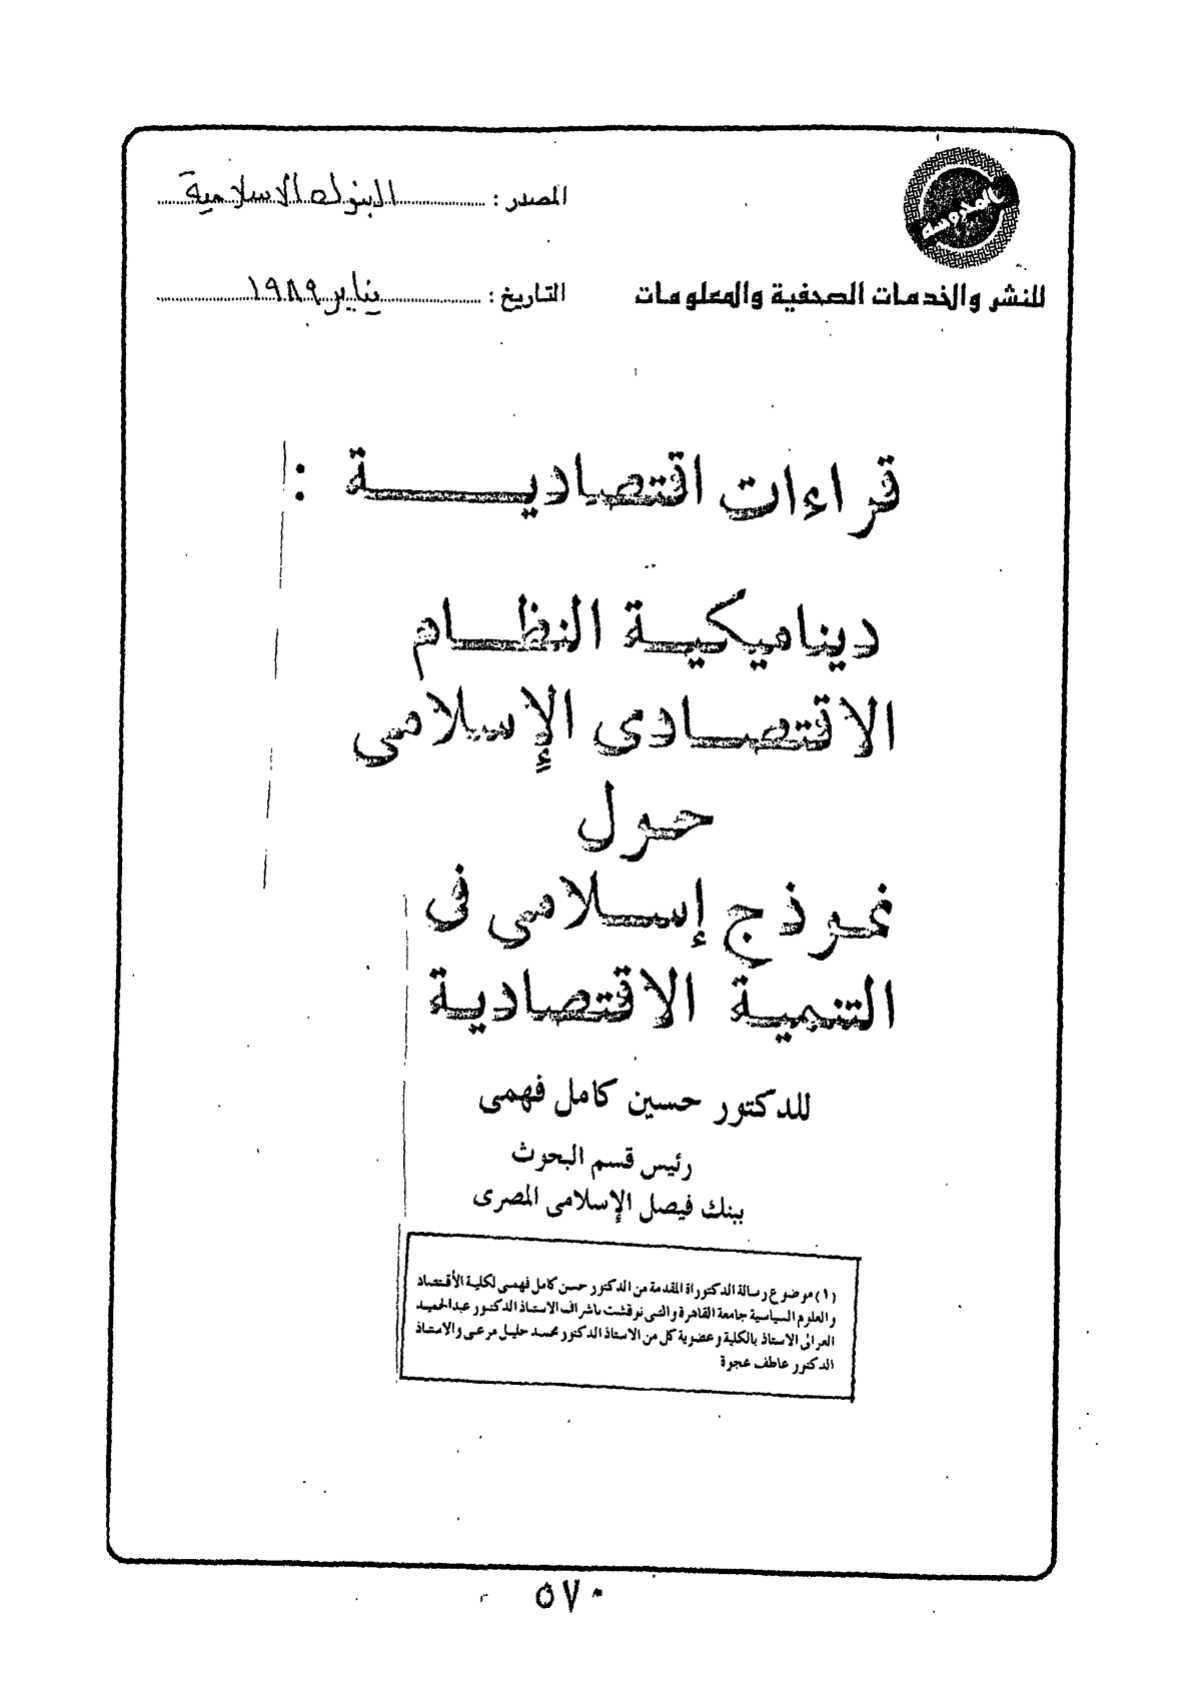 المدوسة
المصدر : البنوك الاسلامية
للنشر والخدمات الصحفية والمعلومات
التاريخ : يناير ١٩٨٩
قراءات اقتصادية :
ديناميكية النظام
الاقتصادى الإسلامى
حول
نموذج إسلامى فى
التنمية الاقتصادية
للدكتور حسين كامل فهمى
رئيس قسم البحوث
ببنك فيصل الإسلامى المصرى
(١) موضوع رسالة الدكتوراة المقدمة من الدكتور حسن كامل فهمى لكلية الأقتصاد
والعلوم السياسية جامعة القاهرة والتى نوقشت باشراف الاستاذ الدكتور عبدالحميد
الغزالى الاستاذ بالكلية وعضوية كل من الاستاذ الدكتور محمد خليل مرعى والاستاذ
الدكتور عاطف عجوة
٥٧٠